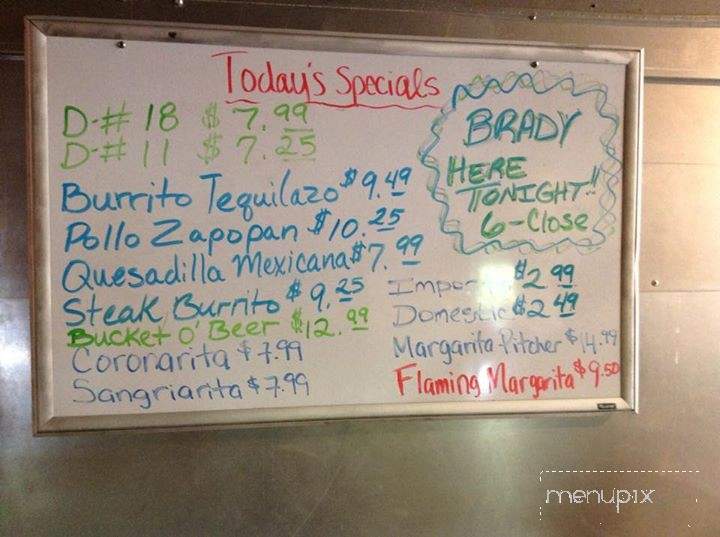 Today's Specials
D-# 18 $ 7.99
D-# 11 $ 7.25
Burrito Tequilazo $9.49
Pollo Zapopan $10.25
Quesadilla Mexicana $7.99
Steak Burrito $9.25
Bucket O' Beer $12.99
Coronarita $7.99
Sangriarita $7.99
BRADY
HERE
TONIGHT!!
6-Close
$2.99
Domestic $2.49
Margarita Pitcher $14.99
Flaming Margarita $9.50
menupix